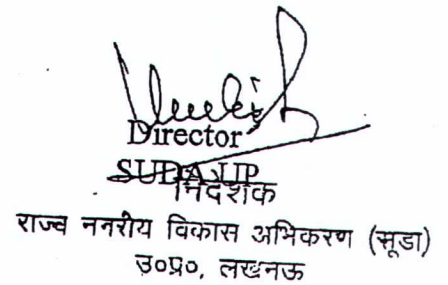 Director
SUDA, UP
निदेशक
राज्य नगरीय विकास अभिकरण (सूडा)
उ०प्र०, लखनऊ